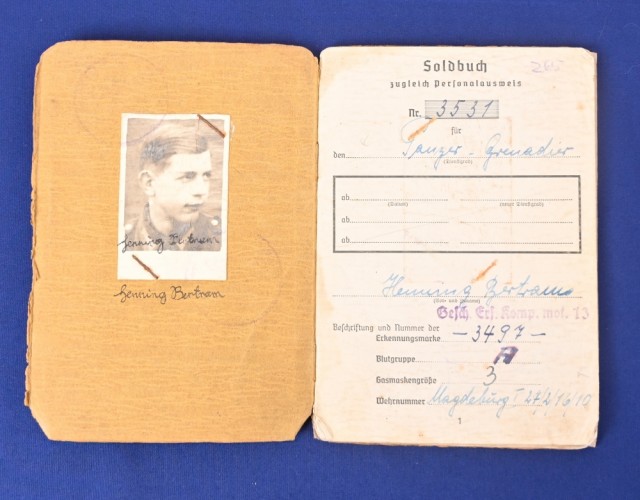 Henning Bertram
Henning Bertram
Soldbuch
zugleich Personalausweis
Nr. 3531
für
den Panzer-Grenadier
(Dienstgrad)
ab
(Datum) (neuer Dienstgrad)
ab
ab
Henning Bertram
(Vor- und Zuname)
Besch. Ers. Komp. mot. 13
Beschriftung und Nummer der
Erkennungsmarke -3497-
Blutgruppe A
Gasmaskengröße 3
Wehrnummer Magdeburg I
1